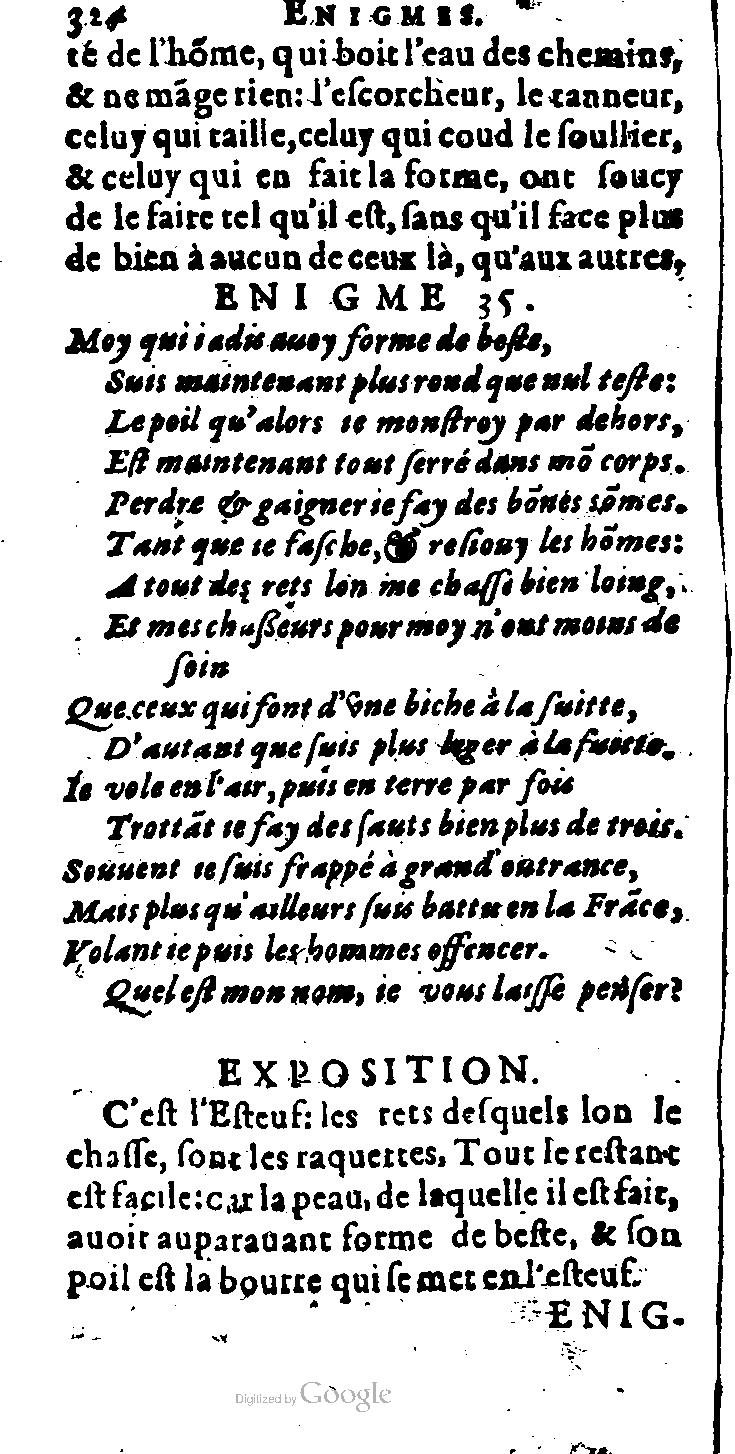 324 ENIGMES.
té de l'hõme, qui boit l'eau des chemins,
& ne mãge rien: l'eſcorcheur, le tanneur,
celuy qui taille, celuy qui coud le ſoullier,
& celuy qui en fait la forme, ont ſoucy
de le faire tel qu'il eſt, ſans qu'il face plus
de bien à aucun de ceux là, qu'aux autres,
ENIGME 35.
Moy qui iadis auoy forme de beſte,
Suis maintenant plus rond que nul teſte:
Le poil qu'alors ie monſtroy par dehors,
Eſt maintenant tout ſerré dans mõ corps.
Perdre & gaigner ie fay des bõnes sõmes.
Tant que ie faſche, & reſiouy les hõmes:
A tout des rets lon me chaſſe bien loing,
Et mes chaſſeurs pour moy n'ont moins de
ſoin
Que ceux qui font d'vne biche à la ſuitte,
D'autant que ſuis plus leger à la fuitte.
Ie vole en l'air, puis en terre par fois
Trottãt ie fay des ſauts bien plus de trois.
Souuent ie ſuis frappé à grand' outrance,
Mais plus qu'ailleurs ſuis battu en la Frãce,
Volant ie puis les hommes offencer.
Quel eſt mon nom, ie vous laiſſe penſer?
EXPOSITION.
C'eſt l'Eſteuf: les rets deſquels lon le
chaſſe, ſont les raquettes, Tout le reſtant
eſt facile: car la peau, de laquelle il eſt fait,
auoit auparauant forme de beſte, & ſon
poil eſt la bourre qui ſe met en l'eſteuf.
ENIG.
Digitized by Google